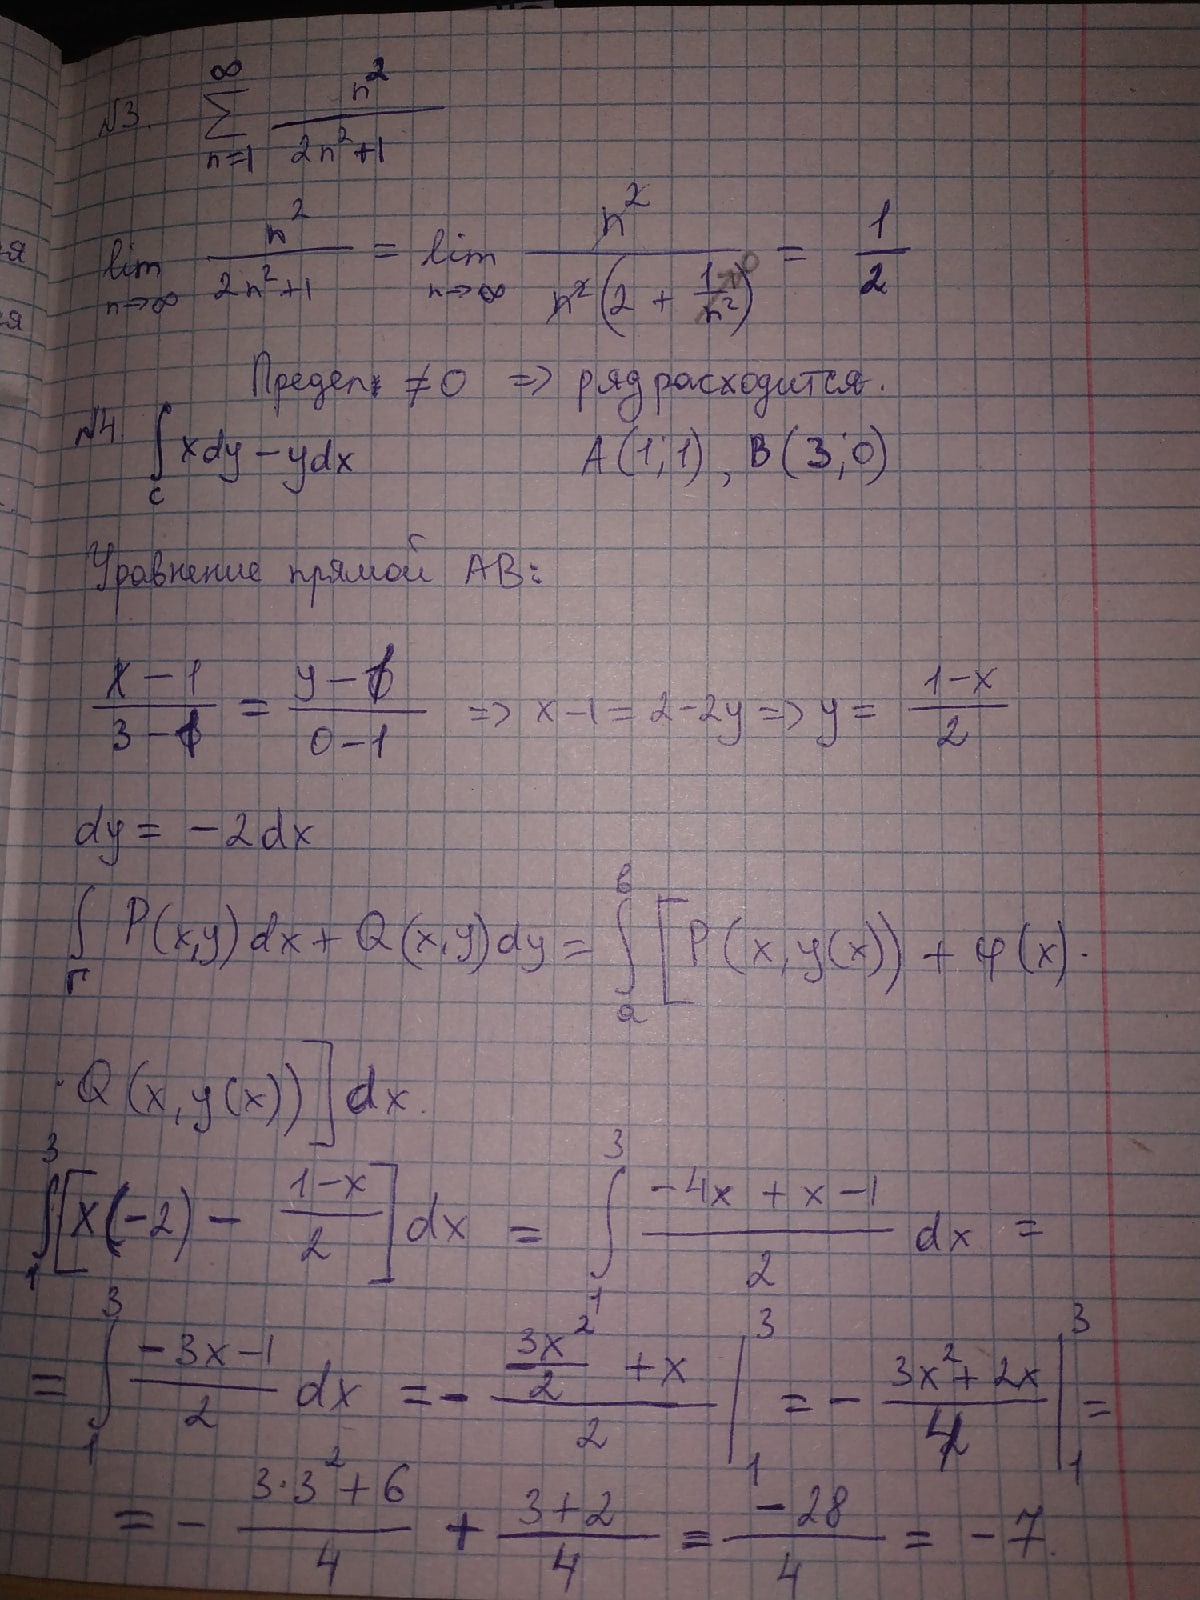 №3. ∑_{n=1}^{∞} n²/(2n²+1)
lim_{n→∞} n²/(2n²+1) = lim_{n→∞} n²/(n²(2 + 1/n²)) = 1/2
Предел ≠ 0 ⇒ ряд расходится.
№4 ∫_c xdy − ydx A(1;1), B(3;0)
Уравнение прямой AB:
(x−1)/(3−1) = (y−1)/(0−1) ⇒ x−1 = 2−2y ⇒ y = (1−x)/2
dy = −2dx
∫_Γ P(x,y)dx + Q(x,y)dy = ∫_a^b [P(x,y(x)) + φ(x)·
·Q(x,y(x))]dx.
∫_1^3 [x(−2) − (1−x)/2]dx = ∫_1^3 (−4x + x − 1)/2 dx =
= ∫_1^3 (−3x−1)/2 dx = − (3x²/2 + x)/2 |_1^3 = − (3x² + 2x)/4 |_1^3 =
= − (3·3² + 6)/4 + (3+2)/4 = −28/4 = −7.